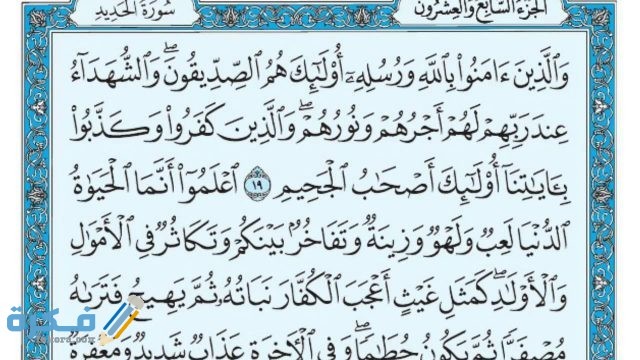 سُورَةُ الحَدِيدِ الجُزْءُ السَّابِعُ وَالعِشْرُونَ
وَالَّذِينَ ءَامَنُوا۟ بِٱللَّهِ وَرُسُلِهِۦٓ أُو۟لَـٰٓئِكَ هُمُ ٱلصِّدِّيقُونَ ۖ وَٱلشُّهَدَآءُ
عِندَ رَبِّهِمْ لَهُمْ أَجْرُهُمْ وَنُورُهُمْ ۖ وَٱلَّذِينَ كَفَرُوا۟ وَكَذَّبُوا۟
بِـَٔايَـٰتِنَآ أُو۟لَـٰٓئِكَ أَصْحَـٰبُ ٱلْجَحِيمِ ١٩ ٱعْلَمُوٓا۟ أَنَّمَا ٱلْحَيَوٰةُ
ٱلدُّنْيَا لَعِبٌ وَلَهْوٌ وَزِينَةٌ وَتَفَاخُرٌۢ بَيْنَكُمْ وَتَكَاثُرٌ فِى ٱلْأَمْوَٰلِ
وَٱلْأَوْلَـٰدِ ۖ كَمَثَلِ غَيْثٍ أَعْجَبَ ٱلْكُفَّارَ نَبَاتُهُۥ ثُمَّ يَهِيجُ فَتَرَىٰهُ
مُصْفَرًّا ثُمَّ يَكُونُ حُطَـٰمًا ۖ وَفِى ٱلْـَٔاخِرَةِ عَذَابٌ شَدِيدٌ وَمَغْفِرَةٌ
فكرة